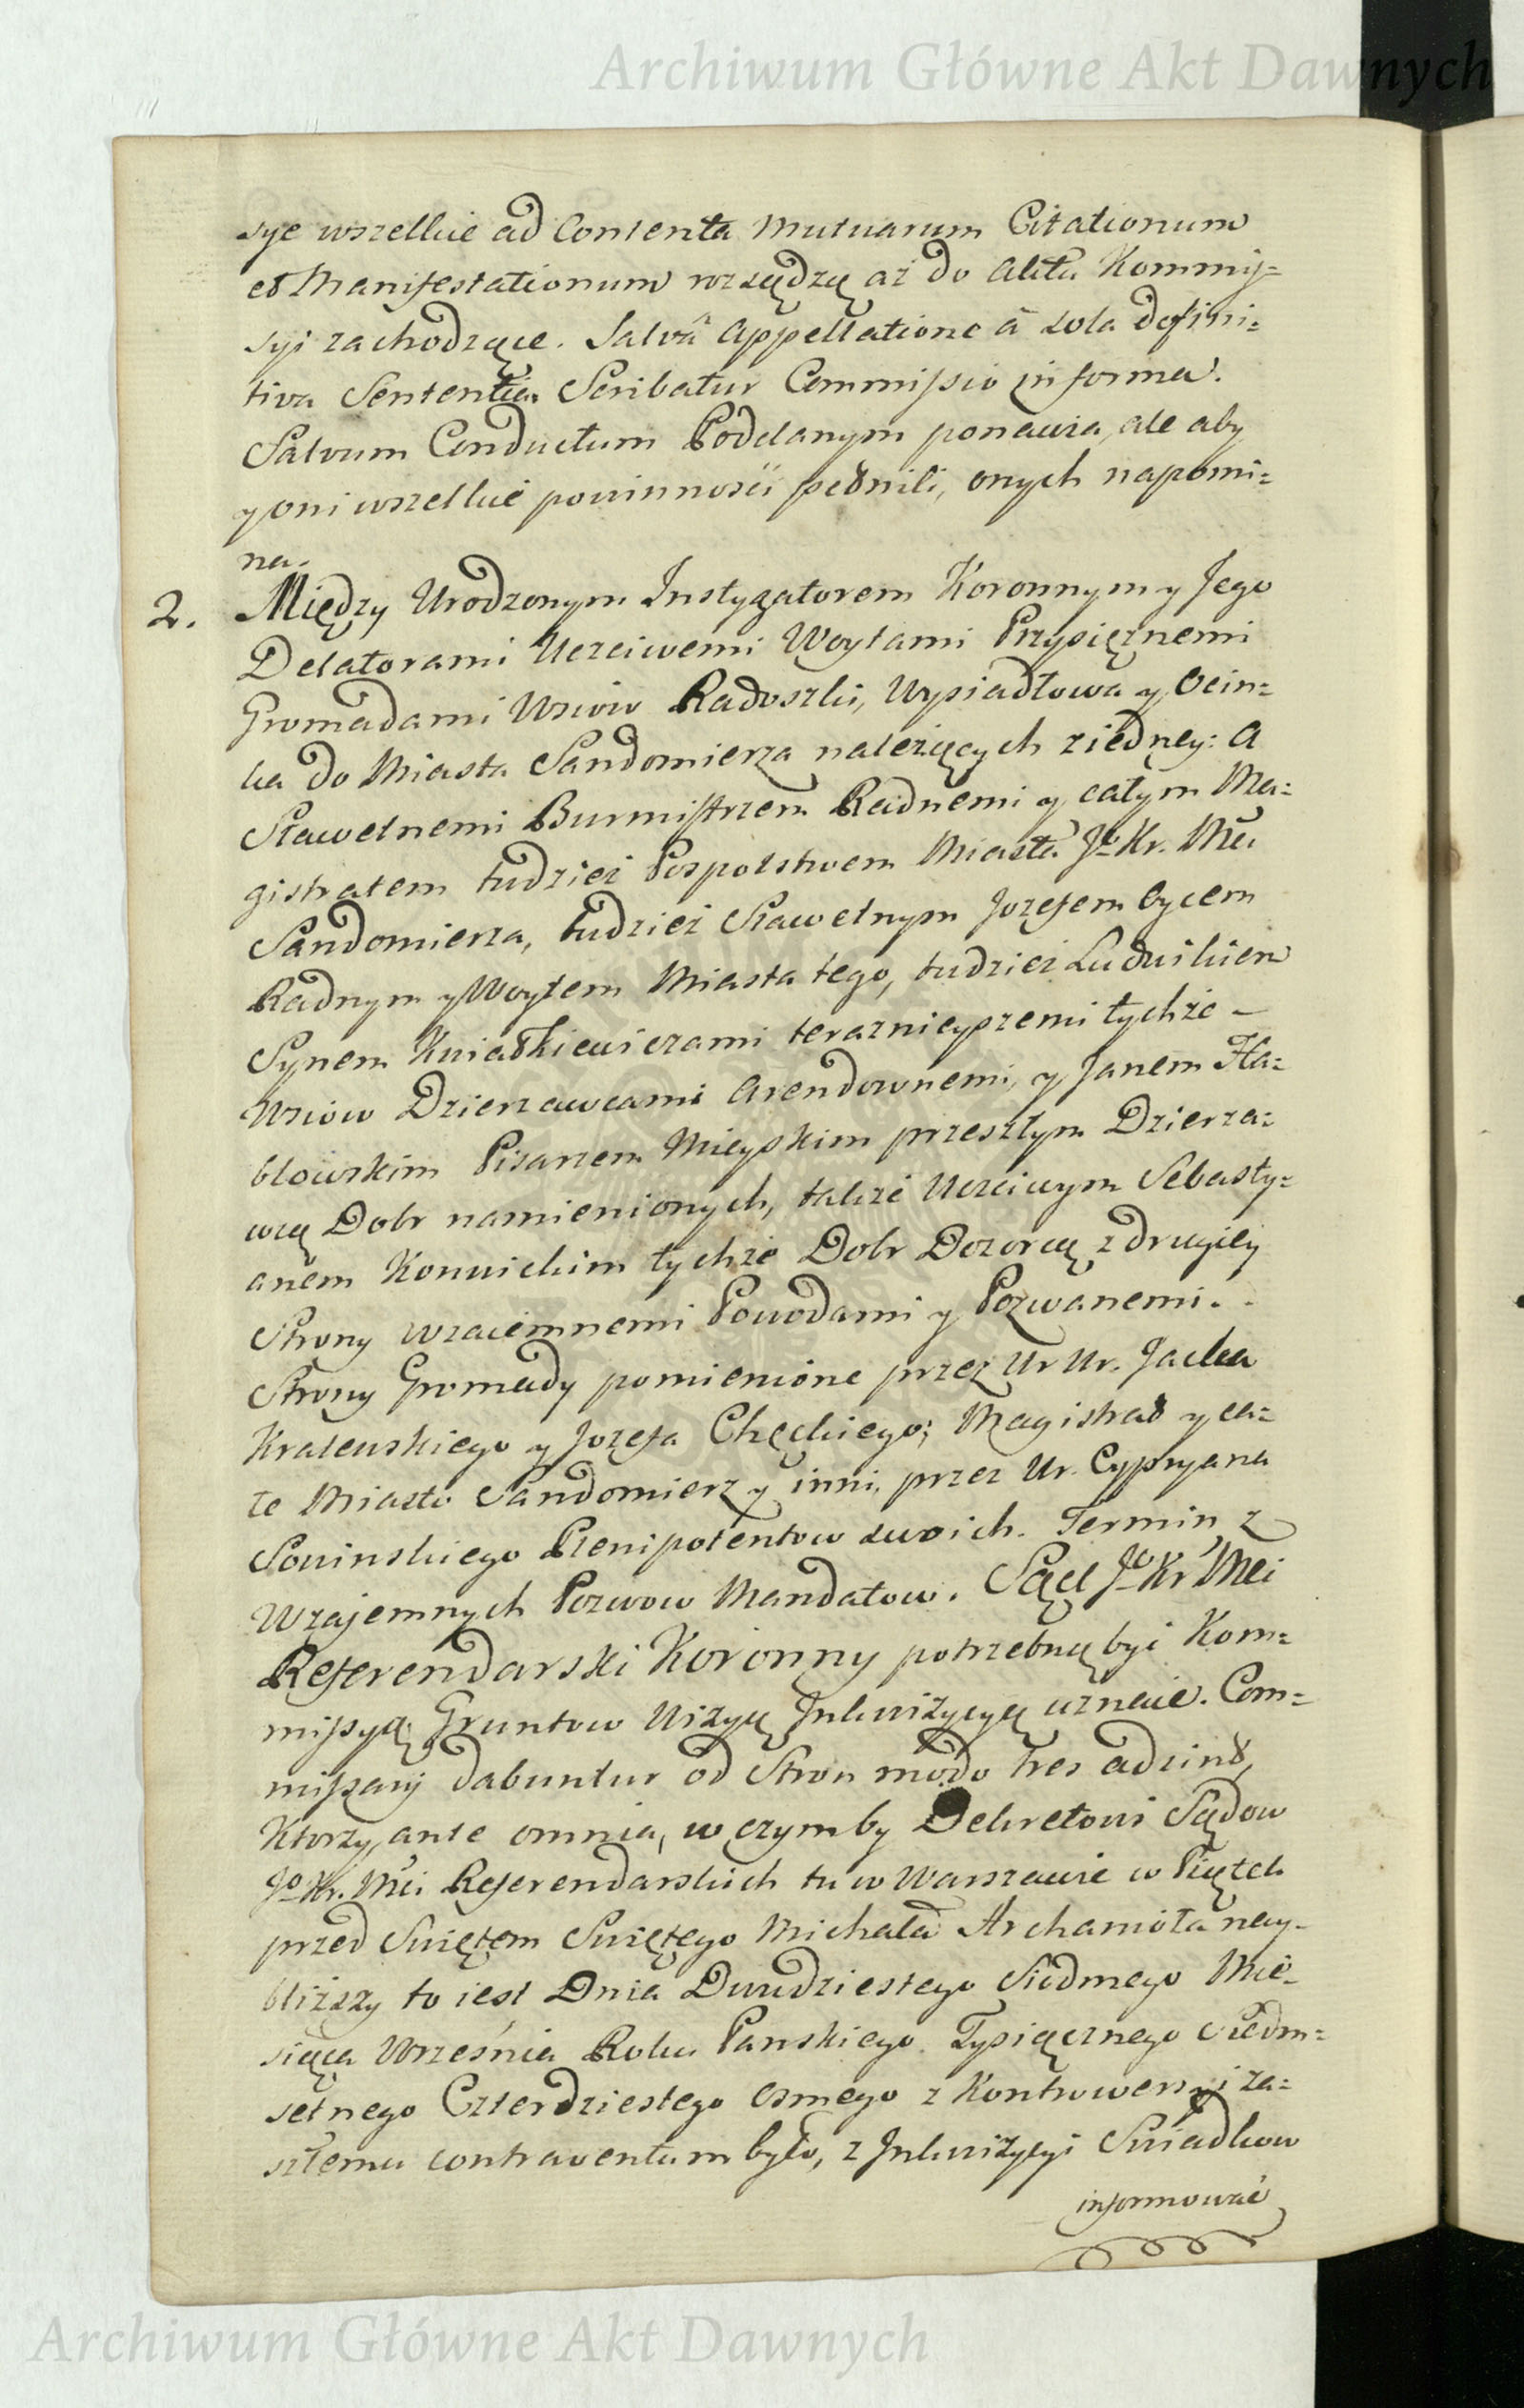 Archiwum Główne Akt Dawnych
sye wszelkie ad Contenta Mutuarum Citationum
et Manifestationum rozsądzą aż do aktu Kommis=
syi zachodzące. Salvâ Appellatione à sola defini=
tiva Sententia. Scribatur Commissio in forma.
Salvum Conductum Poddanym ponawia, ale aby
y oni wszelkie powinności pełnili, onych napomi=
na.
2. Między Urodzonym Instygatorem Koronnym y Jego
Delatorami Uczciwemi Woytami Przysiężnemi
Gromadami Wsiow Radoszki, Wysiadłowa y Ocin=
ka do Miasta Sandomierza należących z iedney: A
Sławetnemi Burmistrzem Radnemi y całym Ma=
gistratem tudzież Pospolstwem Miasta Jo Kr. Mci
Sandomierza, tudzież Sławetnym Jozefem Oycem
Radnym y Woytem Miasta tego, tudzież Ludwikiem
Synem Kwiatkiewiczami teraznieyszemi tychże –
Wsiow Dzierzawcami Arendownemi, y Janem Ha=
błowskim Pisarzem Mieyskim przeszłym Dzierza=
wcą Dobr namienionych, także Uczciwym Sebasty=
anem Konwickim tychże Dobr Dozorcą z drugiey
Strony wzaiemnemi Powodami y Pozwanemi.
Strony Gromady pomienione przez Ur Ur. Jacka
Kralewskiego y Jozefa Chęckiego; Magistrat y ca=
łe Miasto Sandomierz y inni, przez Ur. Cypryana
Sowinskiego Plenipotentow swoich. Termin z
Wzajemnych Pozwow Mandatow. Sąd Jo Kr Mci
Referendarski Koronny potrzebną być Kom=
missyą, Gruntow Wizyą Inkwizycyą uznaie. Com=
missarij dabuntur od Stron modo tres adzint,
Ktorzy, ante omnia, w czym by Dekretowi Sądow
Jo Kr. Mci Referendarskich tu w Warszawie w Piątek
przed Swiętem Swiętego Michała Archanioła nay-
bliższy to iest Dnia Dwudziestego Siodmego Mie-
siąca Września Roku Panskiego Tysiącznego Siedm=
setnego Czterdziestego Osmego z Kontrowersyi za=
szłemu contraventum było, z Inkwizycyi Swiadkow
informować
Archiwum Główne Akt Dawnych